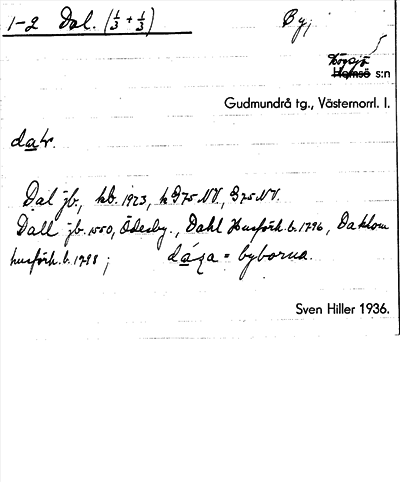 1-2 Dal. (1/3 + 1/3) By;
5
Högsjö
Hemsö s:n
Gudmundrå tg., Västernorrl. l.
daḷr.
Dal jb, kb. 1923, k G75 NV., G75 NV.
Dall jb. 1550, Ödesby., Dahl Husförh. b. 1796, Daklom
husförh. b. 1798; = byborna.
Sven Hiller 1936.